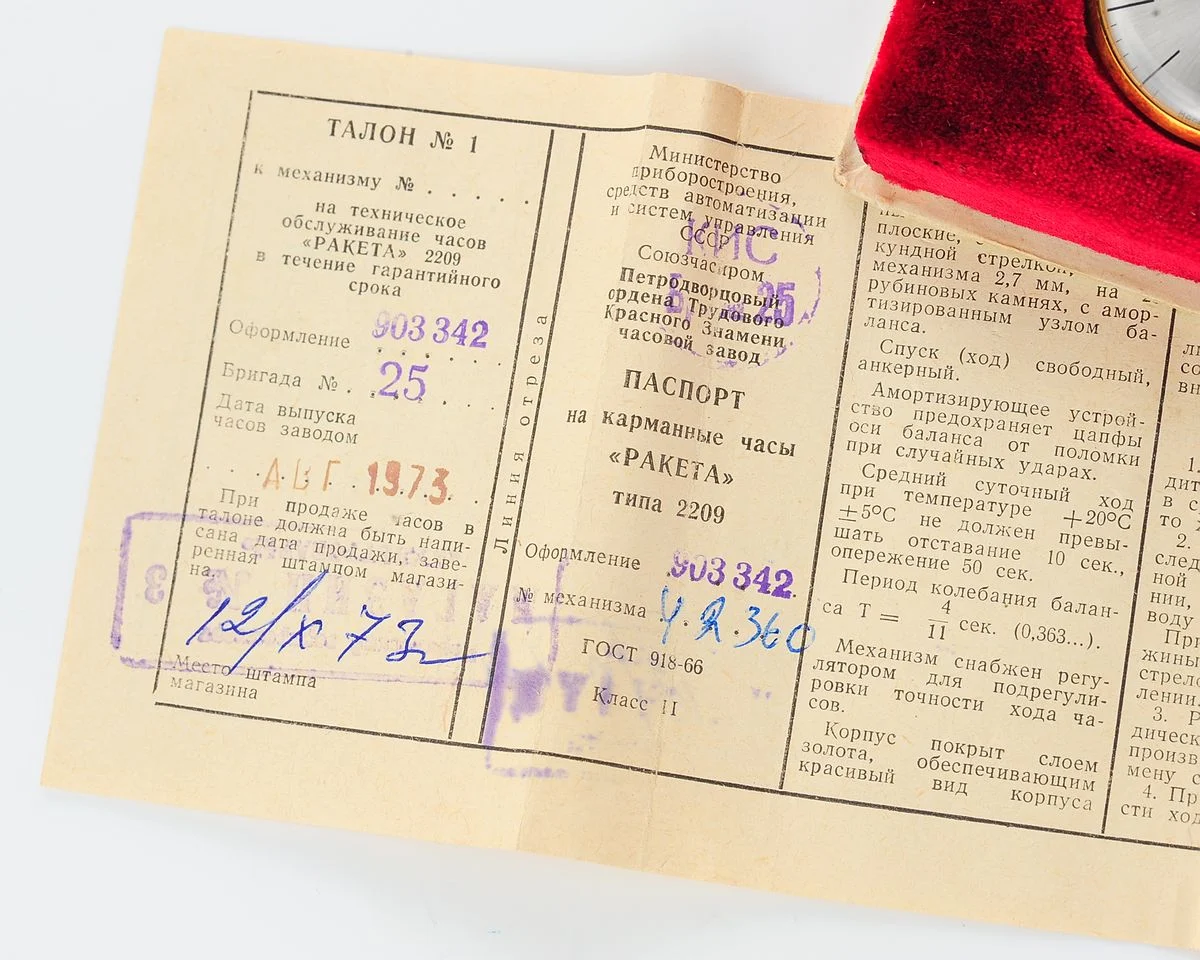 ТАЛОН № 1
к механизму № . . . . .
на техническое
обслуживание часов
«РАКЕТА» 2209
в течение гарантийного
срока
Оформление 903 342
Бригада № . 25
Дата выпуска
часов заводом
АВГ 1973
При продаже часов в
талоне должна быть напи-
сана дата продажи, заве-
ренная штампом магази-
на.
12/X 73г
Место штампа
магазина
Линия отреза
Министерство
приборостроения,
средств автоматизации
и систем управления
СССР
КИС
Союзчаспром
Петродворцовый
ордена Трудового
Красного Знамени
часовой завод
25
ПАСПОРТ
на карманные часы
«РАКЕТА»
типа 2209
Оформление 903 342
№ механизма
360
ГОСТ 918-66
Класс II
плоские, с
кундной стрелкой,
механизма 2,7 мм, на
рубиновых камнях, с амор-
тизированным узлом ба-
ланса.
Спуск (ход) свободный,
анкерный.
Амортизирующее устрой-
ство предохраняет цапфы
оси баланса от поломки
при случайных ударах.
Средний суточный ход
при температуре +20°С
±5°С не должен превы-
шать отставание 10 сек.,
опережение 50 сек.
Период колебания балан-
са Т = 4/11 сек. (0,363...).
Механизм снабжен регу-
лятором для подрегули-
ровки точности хода ча-
сов.
Корпус покрыт слоем
золота, обеспечивающим
красивый вид корпуса
1.
дит
в с
то
2.
след
ной
нии,
воду
При
жины
стрело
лении.
3. Р
дическ
произв
мену с
4. Пр
сти ход